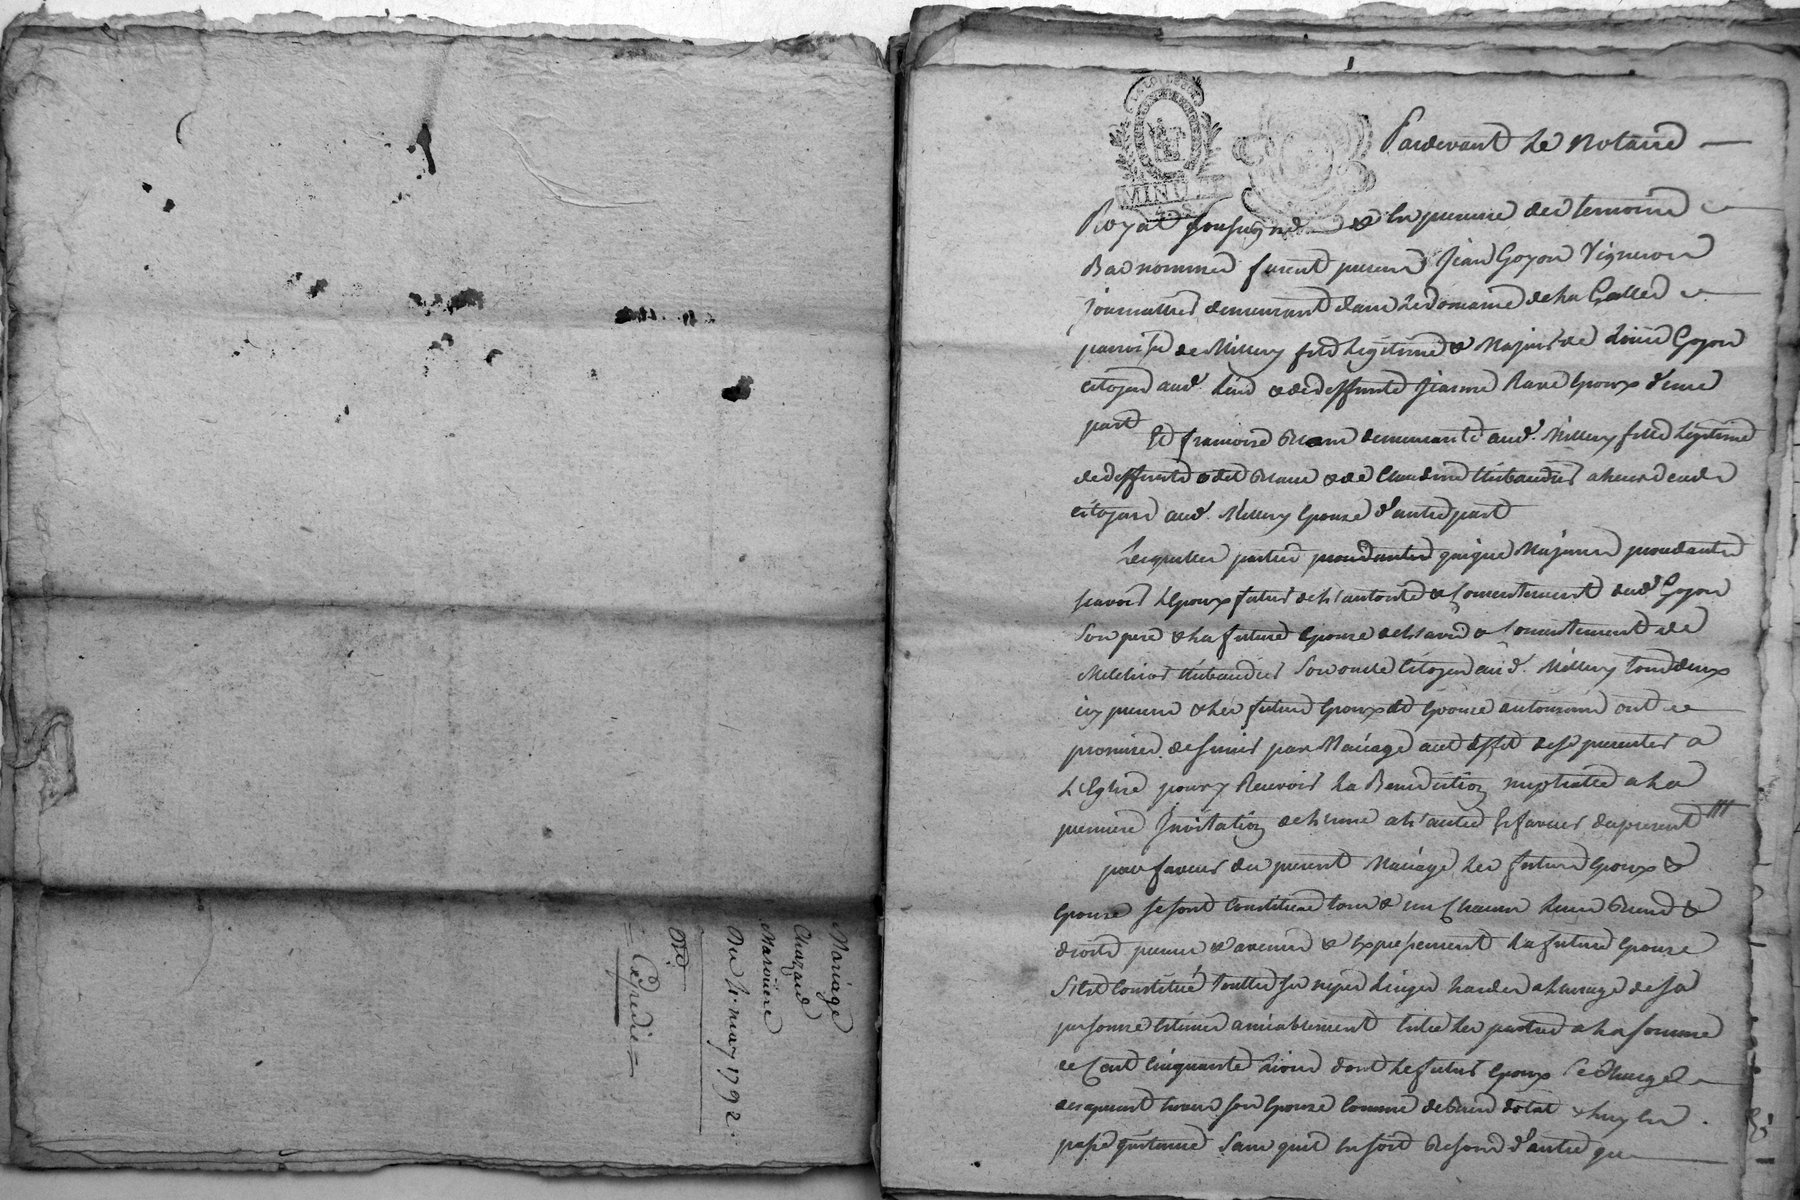 Mariage
Chazaud
Maroniere
Du 4. may 1792.
Expedie
MINUT
Pardevant Le Notaire
Royal soussigné & En presence des temoins
Bas nommes furent presens Jean Goyon Vigneron
Journallier demeurant dans Le domaine de La Gallée
parroisse de Millery fils Legitime & Majeur de Goyon
citoyen aud. Lieu & de deffunte Jeanne Epoux d'une
part
Et francoise demeurante aud. Millery fille Legitime
de deffunt & de Claudine Thibaudier
citoyens aud. Millery Epouse d'autre part
Lesquelles parties procedantes quoique Majeures procedantes
scavoir L'Epoux futur de L'autorité & Consentement dud. Goyon
Son pere & La future Epouse de L'avis & Consentement de
Thibaudier Son oncle Citoyen aud. Millery tous deux
icy presens & Les futurs Epoux et Epouse autorisans ont
promis de s'unir par Mariage aud. effet de se presenter a
L'Eglise pour y Recevoir La Benediction nuptialle a La
premiere Invitation de L'une a L'autre En faveur du present
par faveur du present Mariage Les futurs Epoux &
Epouse se sont Constitués tous & un Chacun Leurs Biens &
droits presens & avenirs & Expressement La future Epouse
S'est Constitué touttes ses nipes Linges hardes a L'usage de sa
personne Estimés amiablement Entre Les parties a La somme
de Cent Cinquante Livres dont Le futur Epoux Se Charge
des apresent envers son Epouse Comme de Biens dotal & Luy En
passe quittance Sans quil En soit Besoin d'autre que